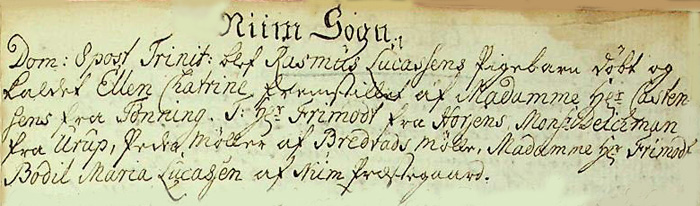 Niim Sogn.
Dom: 8 post Trinit: blef Rasmus Lucassens Pigebarn døbt og
kaldet Ellen Chatrine, fremstillet af Madamme Hr. Casten-
sens fra Tønning. T: Hr Frimodt fra Horsens, Mons. Deichman
fra Urup, Peder Møller af Bredvads mølle, Madamme Hr Frimodt
Bodil Maria Lucassen af Niim Præstegaard.